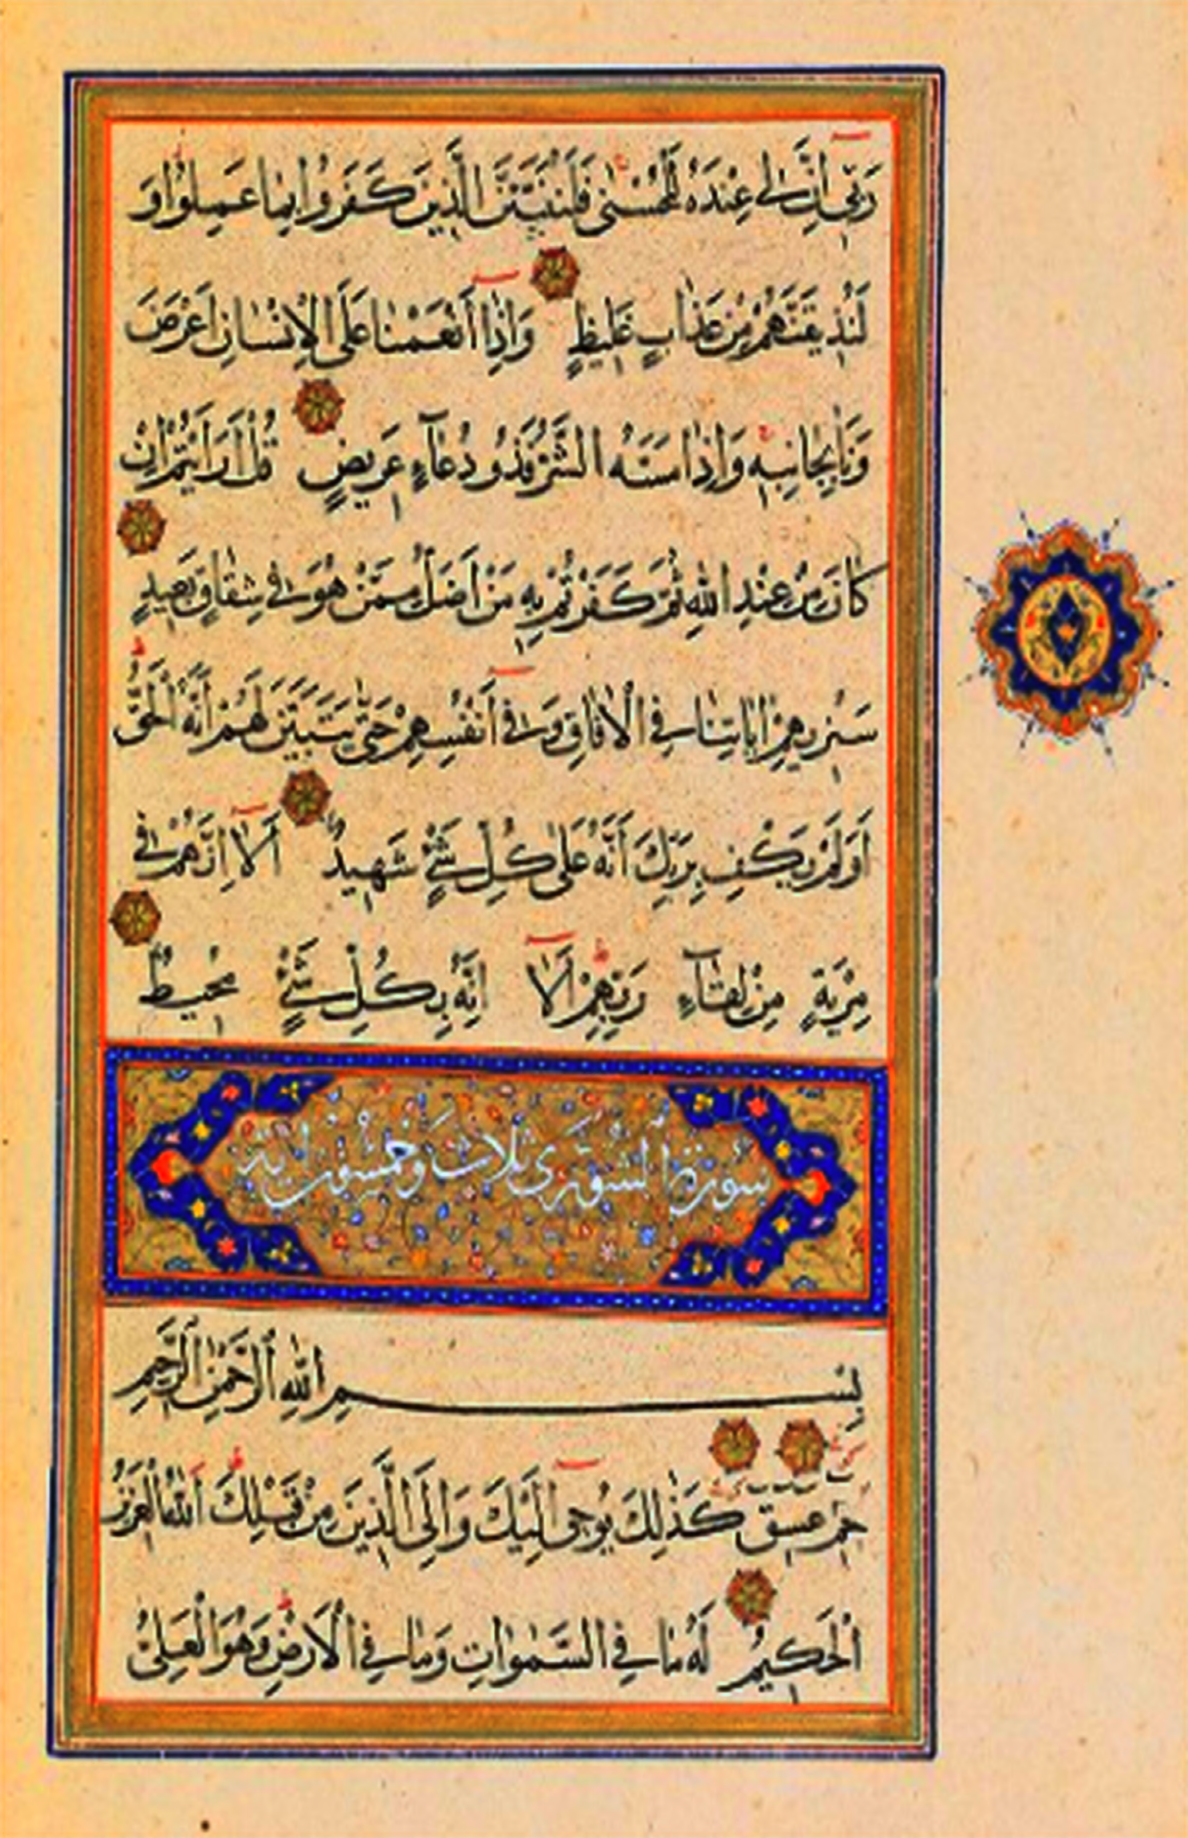 رَبّى اِنَّ لى عِنْدَهُ لَلْحُسْنٰى فَلَنُنَبِّئَنَّ الَّذينَ كَفَرُوا بِمَا عَمِلُوا وَ
لَنُذيقَنَّهُمْ مِنْ عَذَابٍ غَليظٍ وَاِذَا اَنْعَمْنَا عَلَى الْاِنْسَانِ اَعْرَضَ
وَنَاٰ بِجَانِبِه وَاِذَا مَسَّهُ الشَّرُّ فَذُو دُعَآءٍ عَريضٍ قُلْ اَرَاَيْتُمْ اِنْ
كَانَ مِنْ عِنْدِ اللّٰهِ ثُمَّ كَفَرْتُمْ بِه مَنْ اَضَلُّ مِمَّنْ هُوَ فى شِقَاقٍ بَعيدٍ
سَنُريهِمْ اٰيَاتِنَا فِى الْاٰفَاقِ وَفى اَنْفُسِهِمْ حَتّٰى يَتَبَيَّنَ لَهُمْ اَنَّهُ الْحَقُّ
اَوَلَمْ يَكْفِ بِرَبِّكَ اَنَّهُ عَلٰى كُلِّ شَىْءٍ شَهيدٌ اَلَا اِنَّهُمْ فى
مِرْيَةٍ مِنْ لِقَآءِ رَبِّهِمْ اَلَا اِنَّهُ بِكُلِّ شَىْءٍ مُحيطٌ
سورة الشورى ثلاث وخمسون اية
بِسْمِ اللّٰهِ الرَّحْمٰنِ الرَّحيمِ
حٰم عسق كَذٰلِكَ يُوحى اِلَيْكَ وَاِلَى الَّذينَ مِنْ قَبْلِكَ اَللّٰهُ الْعَزيزُ
الْحَكيمُ لَهُ مَا فِى السَّمٰوَاتِ وَمَا فِى الْاَرْضِ وَهُوَ الْعَلِىُّ